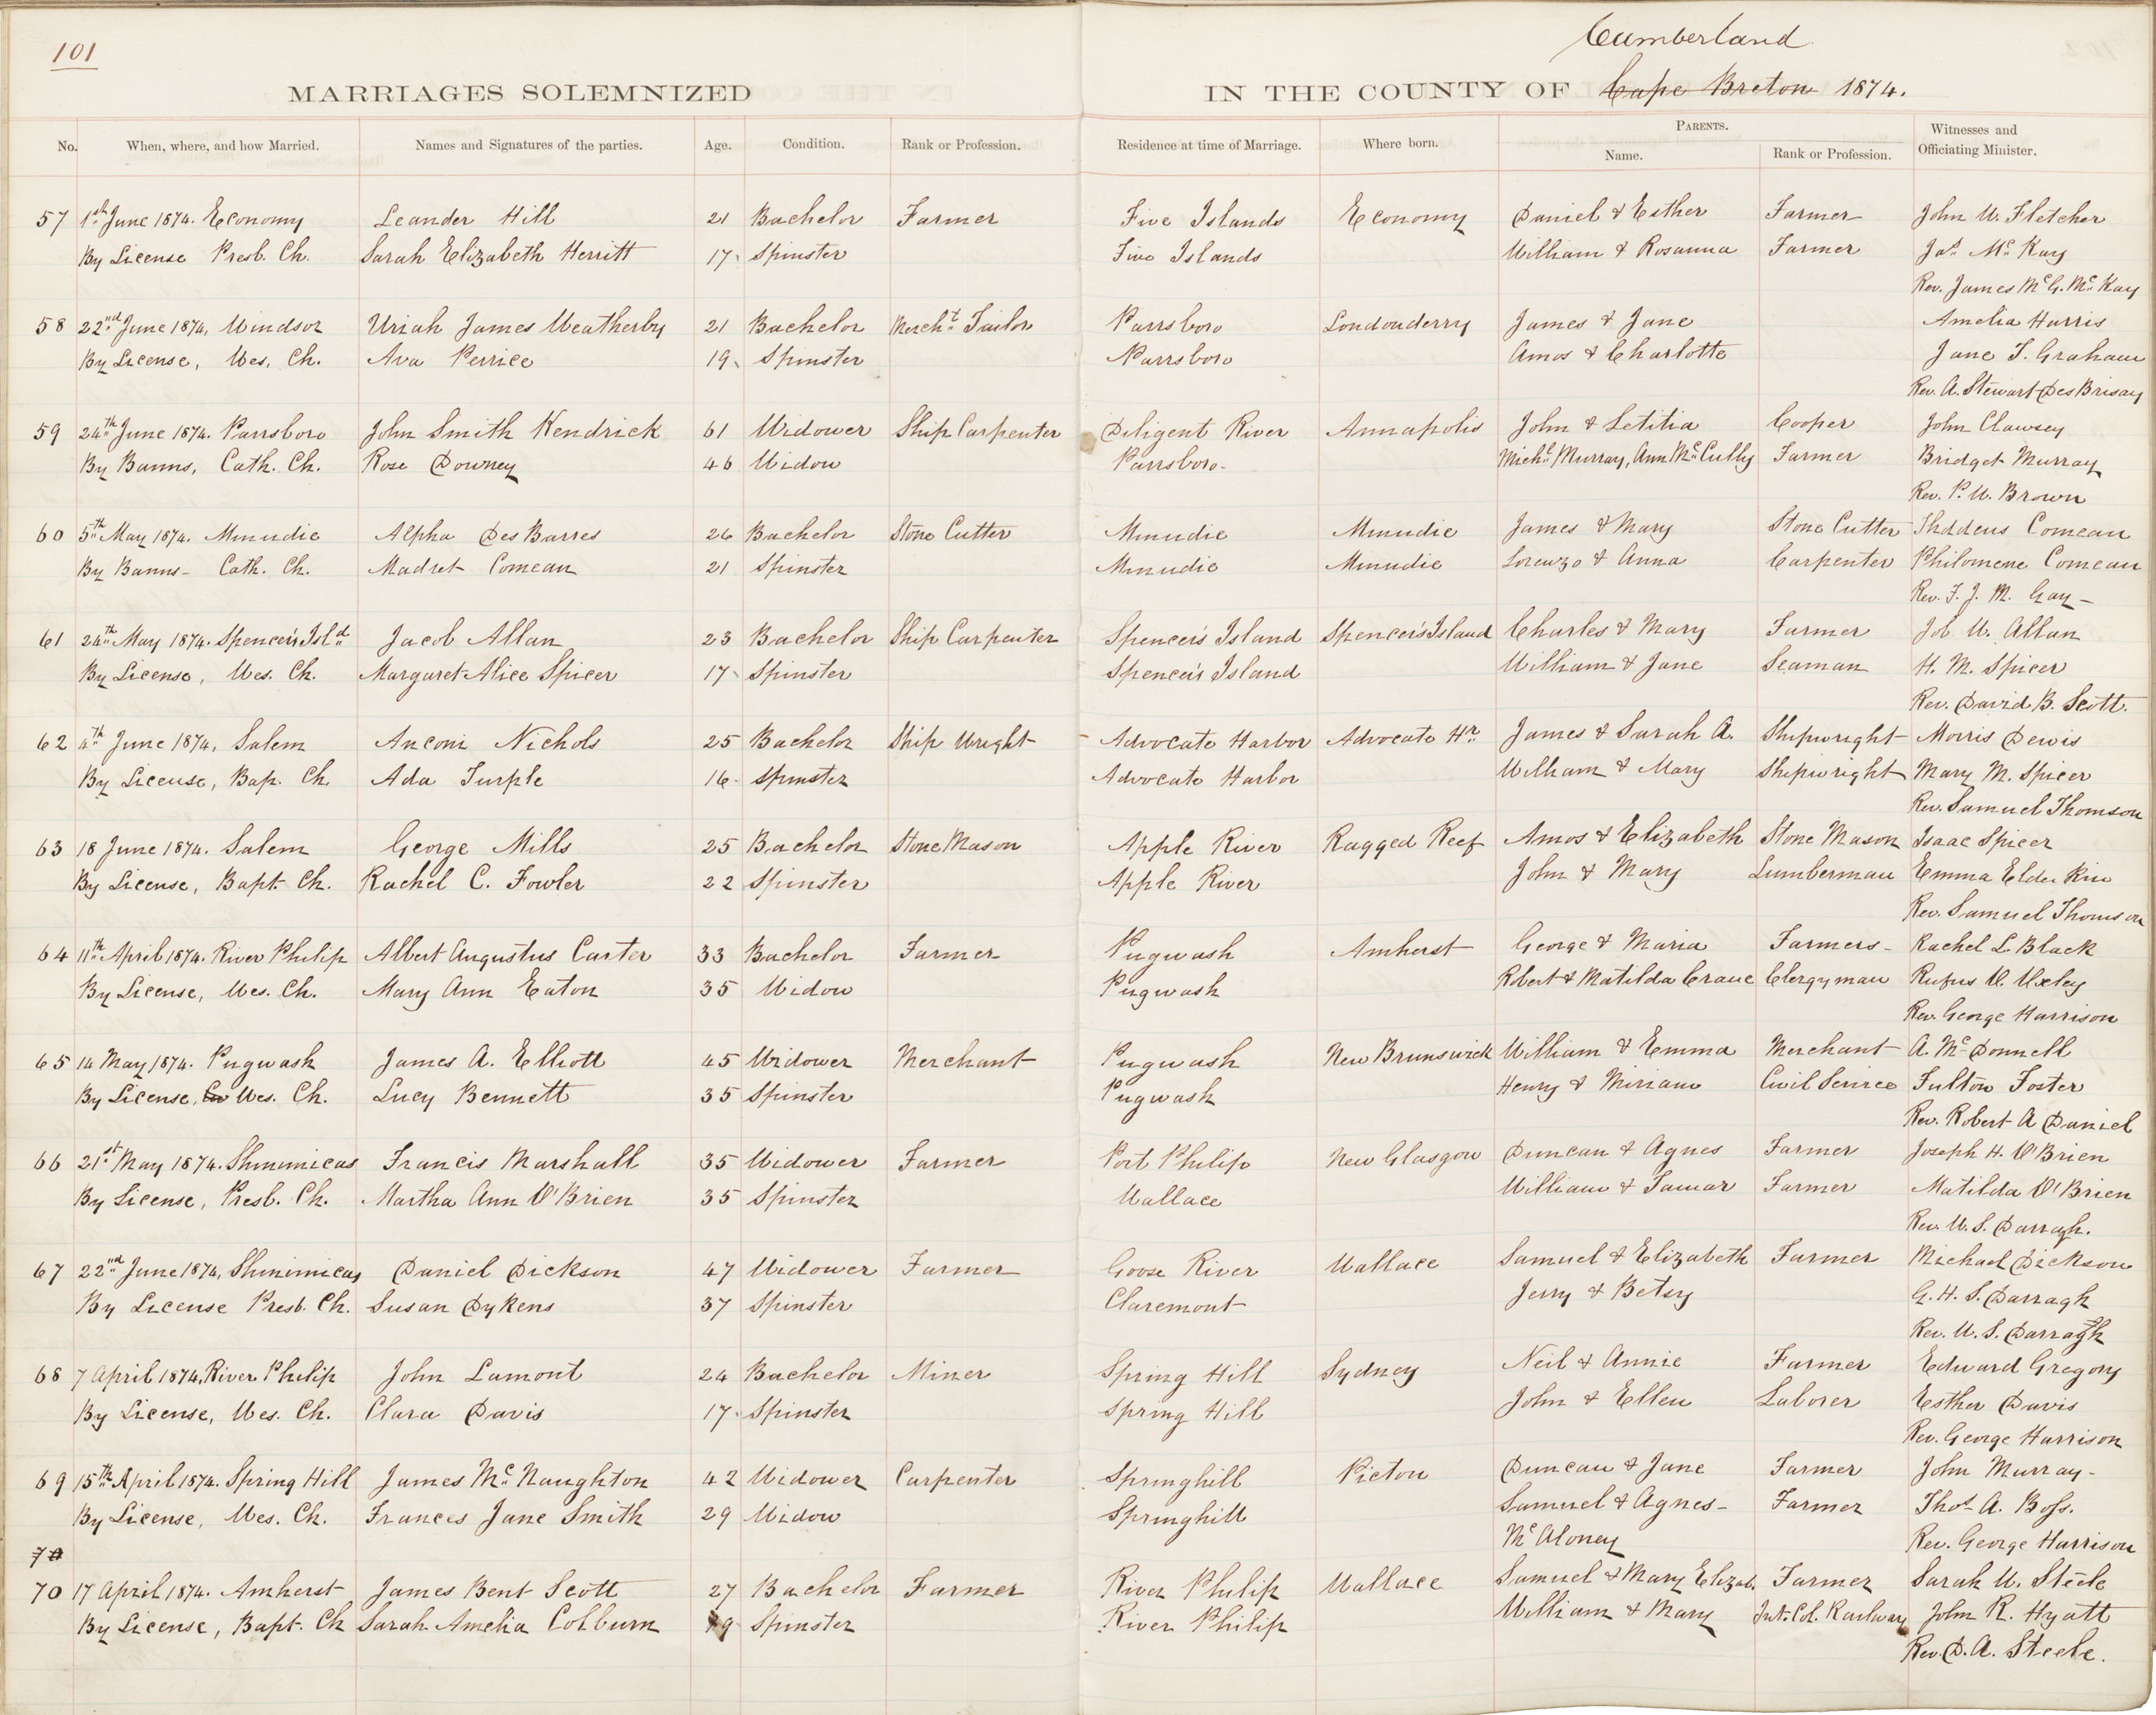 101
Cumberland
MARRIAGES SOLEMNIZED IN THE COUNTY OF Cape Breton 1874.
No. When, where, and how Married. Names and Signatures of the parties. Age. Condition. Rank or Profession. Residence at time of Marriage. Where born. PARENTS. Name. Rank or Profession. Witnesses and Officiating Minister.
57 1st June 1874. Economy Leander Hill 21 Bachelor Farmer Five Islands Economy Daniel & Esther Farmer John W. Fletcher
By License Presb. Ch. Sarah Elizabeth Herritt 17 Spinster Five Islands William & Rosanna Farmer Jas McKay
Rev. James McG. McKay
58 22nd June 1874, Windsor Uriah James Weatherby 21 Bachelor Mercht Tailor Parrsboro Londonderry James & Jane Amelia Harris
By License, Wes. Ch. Ava Perrice 19 Spinster Parrsboro Amos & Charlotte Jane T. Graham
Rev. A. Stewart DesBrisay
59 24th June 1874. Parrsboro John Smith Kendrick 61 Widower Ship Carpenter Diligent River Annapolis John & Letitia Cooper John Clawsey
By Banns, Cath. Ch. Rose Downey 46 Widow Parrsboro- Michl Murray, Ann McCully Farmer Bridget Murray
Rev. P. W. Brown
60 5th May 1874. Minudie Alpha DesBarres 26 Bachelor Stone Cutter Minudie Minudie James & Mary Stone Cutter Thddeus Comeau
By Banns- Cath. Ch. Madret Comeau 21 Spinster Minudie Minudie Lorenzo & Anna Carpenter Philomene Comeau
Rev. F. J. M. Gay-
61 24th May 1874. Spencer's Isld Jacob Allan 23 Bachelor Ship Carpenter Spencer's Island Spencer's Island Charles & Mary Farmer Job W. Allan
By License, Wes. Ch. Margaret Alice Spicer 17 Spinster Spencer's Island William & Jane Seaman H. M. Spicer
Rev. David B. Scott.
62 4th June 1874, Salem Anconi Nichols 25 Bachelor Ship Wright Advocate Harbor Advocate Hr. James & Sarah A. Shipwright Morris Dewis
By License, Bap. Ch. Ada Turple 16 Spinster Advocate Harbor William & Mary Shipwright Mary M. Spicer
Rev. Samuel Thomson
63 18 June 1874. Salem George Mills 25 Bachelor Stone Mason Apple River Ragged Reef Amos & Elizabeth Stone Mason Isaac Spicer
By License, Bapt. Ch. Rachel C. Fowler 22 Spinster Apple River John & Mary Lumberman Emma Elder Kin
Rev. Samuel Thomson
64 11th April 1874. River Philip Albert Augustus Carter 33 Bachelor Farmer Pugwash Amherst George & Maria Farmers- Rachel L. Black
By License, Wes. Ch. Mary Ann Eaton 35 Widow Pugwash Robert & Matilda Crane Clergyman Rufus
Rev. George Harrison
65 14 May 1874. Pugwash James A. Elliott 45 Widower Merchant Pugwash New Brunswick William & Emma Merchant A. McDonnell
By License, Wes. Ch. Lucy Bennett 35 Spinster Pugwash Henry & Miriam Civil Service Fulton Foster
Rev. Robert A Daniel
66 21st May 1874. Shinimicas Francis Marshall 35 Widower Farmer Port Philip New Glasgow Duncan & Agnes Farmer Joseph H. O'Brien
By License, Presb. Ch. Martha Ann O'Brien 35 Spinster Wallace William & Tamar Farmer Matilda O'Brien
Rev. W. S. Darragh.
67 22nd June 1874, Shinimicas Daniel Dickson 47 Widower Farmer Goose River Wallace Samuel & Elizabeth Farmer Michael Dickson
By License Presb. Ch. Susan Dykens 37 Spinster Claremont Jerry & Betsy G. H. S. Darragh
Rev. W. S. Darragh
68 7 April 1874, River Philip John Lamont 24 Bachelor Miner Spring Hill Sydney Neil & Annie Farmer Edward Gregory
By License, Wes. Ch. Clara Davis 17 Spinster Spring Hill John & Ellen Laborer Esther Davis
Rev. George Harrison
69 15th April 1874. Spring Hill James McNaughton 42 Widower Carpenter Springhill Pictou Duncan & Jane Farmer John Murray-
By License, Wes. Ch. Frances Jane Smith 29 Widow Springhill Samuel & Agnes- Farmer Thos A. Boss.
70 McAloney Rev. George Harrison
70 17 April 1874. Amherst James Bent Scott 27 Bachelor Farmer River Philip Wallace Samuel & Mary Elizab. Farmer Sarah W. Steele
By License, Bapt. Ch Sarah Amelia Colburn 19 Spinster River Philip William & Mary Int. Col. Railway John R. Hyatt
Rev. D. A. Steele.